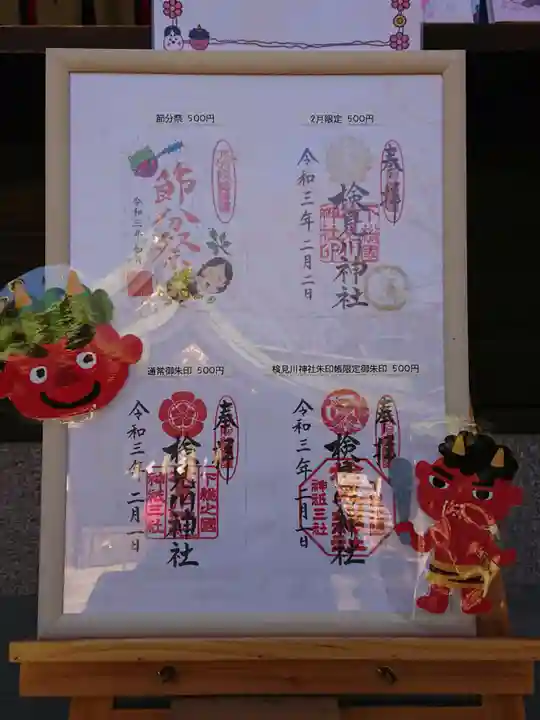 節分祭 500円
2月限定 500円
節分祭
奉拝
検見川神社
令和三年二月二日
通常御朱印 500円
検見川神社朱印帳限定御朱印 500円
奉拝
検見川神社
下総之國
神祇三社
令和三年二月一日
奉拝
検見川神社
神祇三社
令和三年二月一日